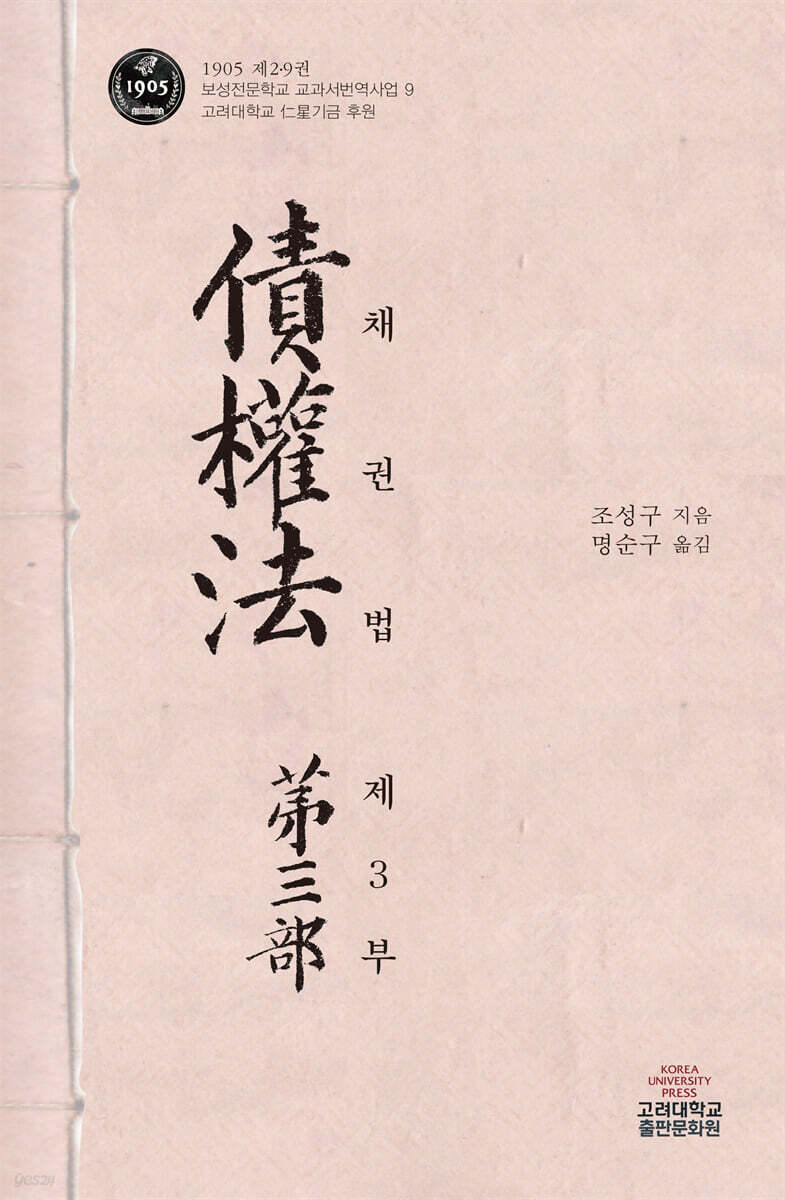 1905
1905 제2·9권
보성전문학교 교과서번역사업 9
고려대학교 仁星기금 후원
債權法
채권법
第三部
제3부
조성구 지음
명순구 옮김
KOREA
UNIVERSITY
PRESS
고려대학교
출판문화원
yes24